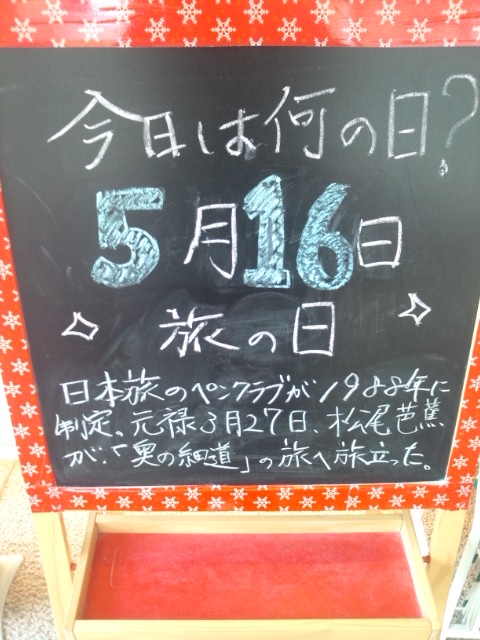 今日は何の日?
5月16日
旅の日
日本旅のペンクラブが1988年に
制定。元禄3月27日、松尾芭蕉
が、「奥の細道」の旅へ旅立った。